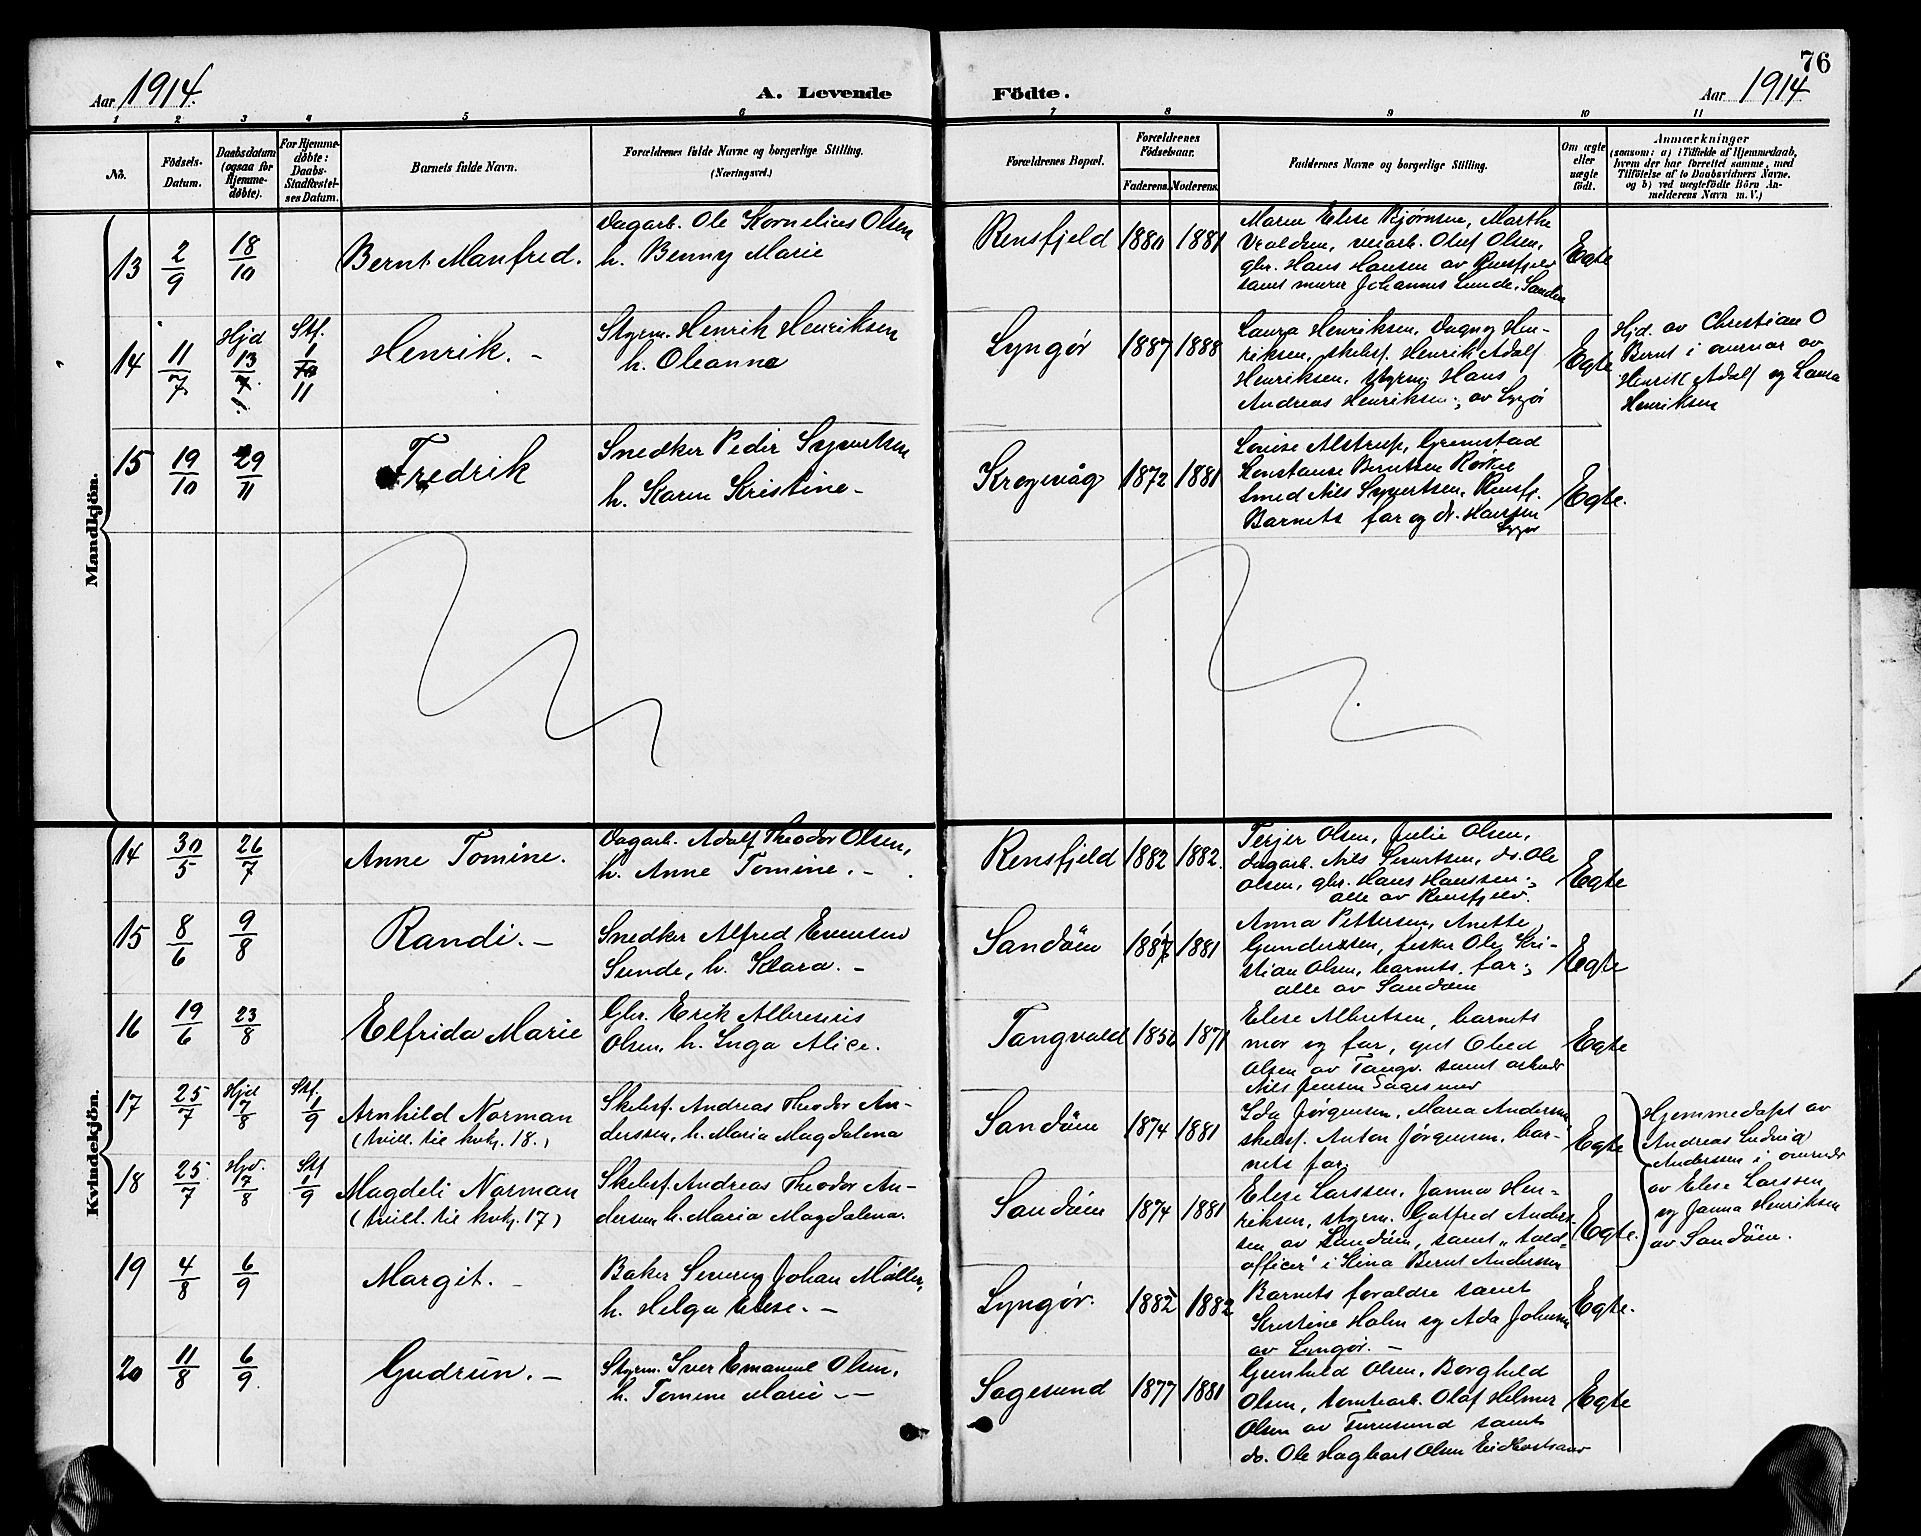 76
Aar 1914.
A. Levende Födte.
Aar 1914
1 2 3 4 5 6 7 8 9 10 11
No.
Födsels-
Datum.
Daabsdatum
(ogsaa for
Hjemme-
döbte).
For Hjemme-
döbte:
Daabs-
Stadfæstel-
ses Datum.
Barnets fulde Navn.
Forældrenes fulde Navne og borgerlige Stilling.
(Næringsvei.)
Forældrenes Bopæl.
Forældrenes
Födselsaar.
Faderens.
Moderens.
Faddernes Navne og borgerlige Stilling.
Om ægte
eller
uægte
födt.
Anmærkninger
(saasom: a) i Tilfælde af Hjemmedaab,
hvem der har forrettet samme, med
Tilföielse af to Daabsvidners Navne.
og b) ved uægtefödte Börn An-
melderens Navn m. V.)
Mandkjön.
13
2/9
18/10
Bernt Manfred.
Dagarb. Ole Kornelius Olsen
h. Benny Marie
Rensfjeld
1880
1881
Maren Elise Bjørnsen, Marthe
Olaf Olsen,
gbr. Hans Hansen av Rensfjeld
samt murer Johannes Sunde, Sandøen
Egte
14
11/7
Hjd
13/7
Stf.
1/11
Henrik. –
Styrm. Henrik Henriksen
h. Oleanna
Lyngør
1887
1888
Laura Henriksen, Dagny Hen-
riksen, skibsf. Henrik Adolf
Henriksen, styrm. Hans
Andreas Henriksen; av Lyngør
Egte
Hjd. av Christian O
Bernt i overvær av
Henrik Adolf og Laura
Henriksen
15
19/10
29/11
Fredrik
Snedker Peder Syvertsen
h. Karen Kristine –
Krogvåg
1872
1881
Louise Alstrup, Grimstad
Konstanse Berntsen
Smed Nils Syvertsen, Rensfj.
Barnets far og dr. Hanssen
Lyngør
Egte.
Kvindekjön.
14
30/5
26/7
Anne Tomine.
Dagarb. Adolf Theodor Olsen,
h. Anne Tomine. –
Rensfjeld
1882
1882.
Terjer Olsen, Julie Olsen,
dagarb. Nils Sivertsen, do. Ole
Olsen, gbr. Hans Hanssen;
alle av Rensfjeld.
Egte
15
8/6
9/8
Randi. –
Snedker Alfred Evensen
Sunde, h. Klara. –
Sandöen
1881
Anna Pettersen, Anette
Gundersen, fisker Ole Kri-
stian Olsen, barnets far;
alle av Sandöen
Egte
16
19/6
23/8
Elfrida Marie
Gbr. Erik
Olsen, h. Inga Alice.
Tangvald
1871
Elise Albretsen, barnets
mor og far, gut Obed
Olsen av Tangv. samt
Nils Jensen Sagesund
Egte
17
25/7
Hjd
7/8
Stf.
1/9
Arnhild Norman
(tvill. til kvkj. 18.)
Skibsf. Andreas Theodor An-
derssen, h. Maria Magdalena
Sandöen
1874
1881
Ida Jørgensen, Maren Andersen
skibsf. Anton Jørgensen, bar-
nets far
Egte
Hjemmedøpt av
Andreas Ludvig
Andersen i overvær
av Elise Larssen
og Janna Henriksen
av Sandöen.
18
25/7
Hjd.
7/8
Stf
1/9
Magdeli Norman
(tvill. til kvkj. 17)
Skibsf. Andreas Theodor An-
dersen h. Maria Magdalena.
Sandöen
1874
1881
Elise Larssen, Janna Hen-
riksen, styrm. Gotfred Anders-
sen av Sandöen, samt „told-
officer" i Kina Bernt Andersen
Egte.
19
4/8
6/9
Margit. –
Baker Severin Johan Möller,
h. Helga Elise. –
Lyngør.
1882
1882
Barnets foraldre samt
Kristine Holm og Ada Johnsen
av Lyngør. –
Egte.
20
11/8
6/9
Gudrun. –
Styrm. Iver Emanuel Olsen,
h. Tomine Marie –
Sagesund
1877
1881
Gunhild Olsen, Borghild
Olsen, tomtearb. Olaf Helmer
Olsen av Furusund samt
do. Ole Hagbart Olsen
Egte